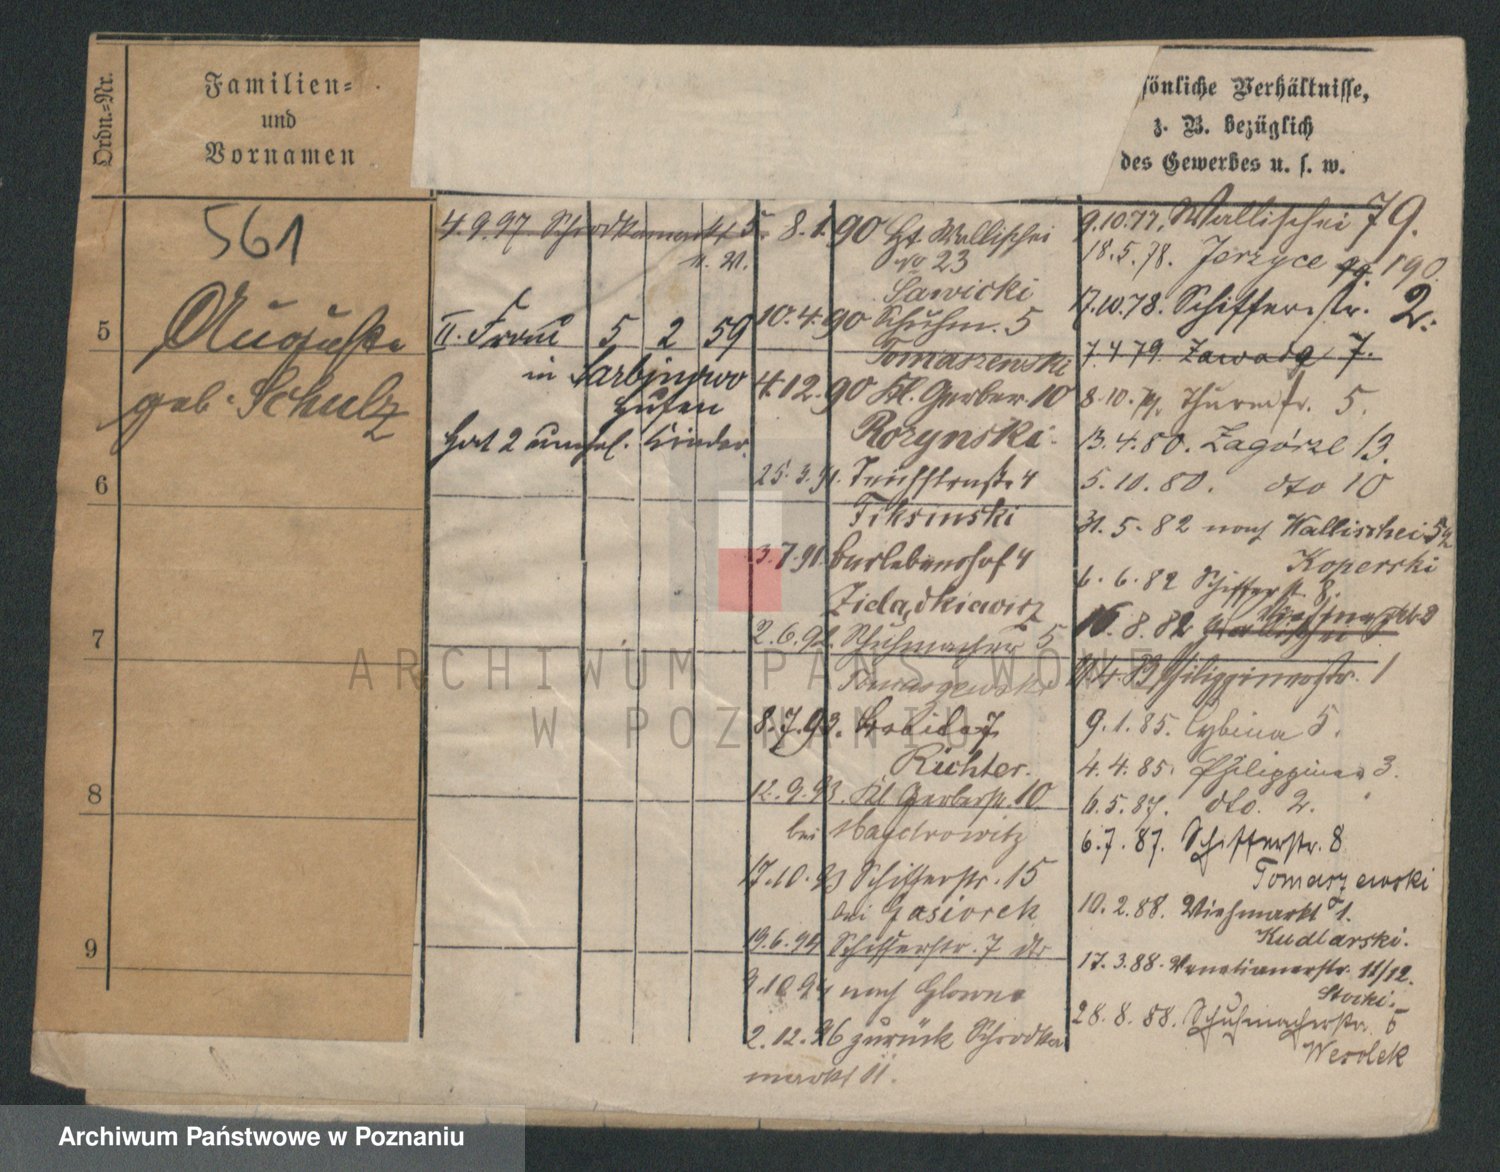 Ordn.=Nr.
Familien=
und
Vornamen
sönliche Verhältnisse,
z. B. bezüglich
des Gewerbes u. s. w.
561
5
Auguste
geb. Schulz
6
7
8
9
4.9.97 Schrodkamarkt 5.
II. Frau 5 2 59
in Sarbinowo
Hufen
hat 2 unehel. Kinder.
8.1.90 Wallischei
No 23
Sawicki
10.4.90 Schuhm. 5
Tomaszewski
4.12.90 Kl. Gerber. 10
Rozynski.
25.3.91. 4
3.7.91. 4
2.6.92. Schuhmacher 5
Tomaszewski
8.7.93. 7
Richter.
12.9.93. Kl. Gerberstr. 10
bei
17.10.93 Schifferstr. 15
bei Gasiorek
19.6.94 Schifferstr. 7
9.10.94 nach Glowno
2.12.96 zurück Schrodka
markt 11.
9.10.77. Wallischei 79.
18.5.78. Jerzyce 190
17.10.78. Schifferstr. 2.
7.4.79. Zawady 7.
8.10.79. Thurmstr. 5.
13.4.80. Zagórze 13.
5.10.80. dto 10
31.5.82 nach Wallischei
Koperski
6.6.82 Schifferstr. 8.
16.8.82
Philippinenstr. 1
9.1.85. Cybina 5.
4.4.85. Philippinen 3.
6.5.87. dto. 2.
6.7.87. Schifferstr. 8
Tomaszewski
10.2.88. Viehmarkt 1.
Kudlarski.
17.3.88. Venetianerstr. 11/12.
28.8.88. Schuhmacherstr. 5
Werolek
ARCHIWUM PAŃSTWOWE
W POZNANIU
Archiwum Państwowe w Poznaniu